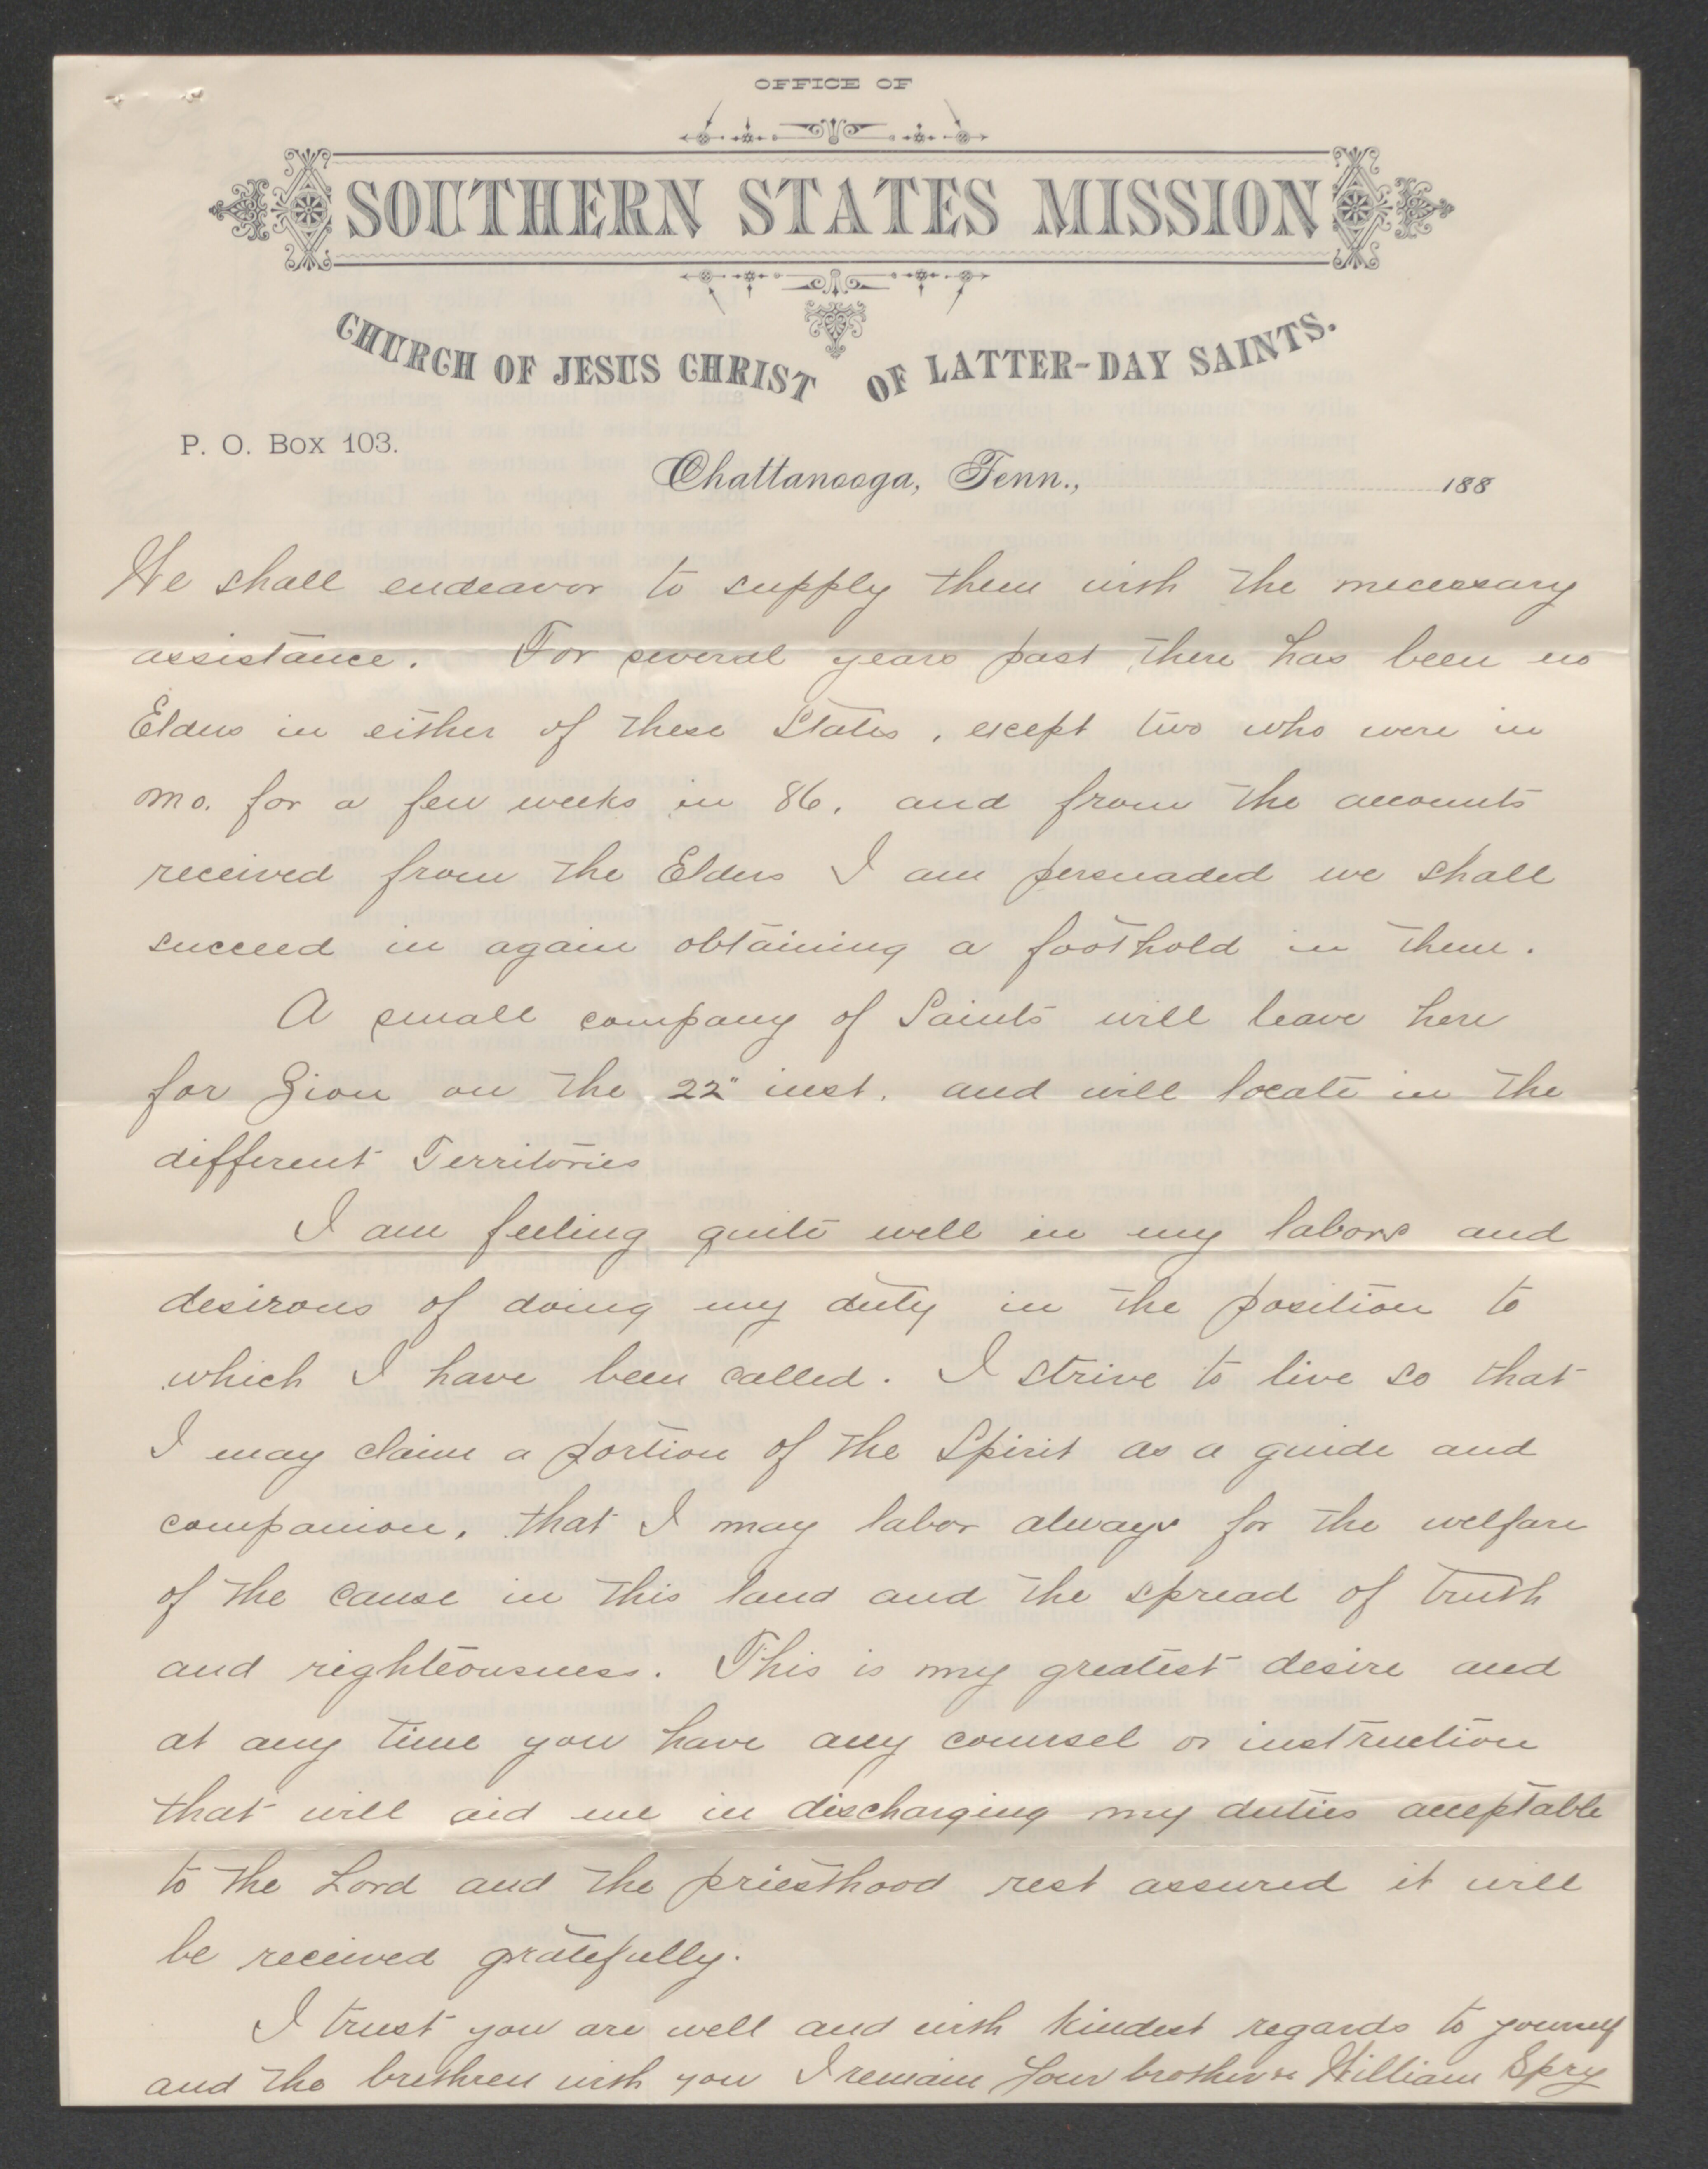 OFFICE OF
SOUTHERN STATES MISSION
CHURCH OF JESUS CHRIST OF LATTER-DAY SAINTS.
P. O. Box 103.
Chattanooga, Tenn., 188
We shall endeavor to supply them with the necessary
assistance. For several years past there has been no
Elders in either of these States, except two who were in
Mo. for a few weeks in 86. and from the accounts
received from the Elders I am persuaded we shall
succeed in again obtaining a foothold in them.
A small company of Saints will leave here
for Zion on the 22" inst. and will locate in the
different Territories
I am feeling quite well in my labors and
desirous of doing my duty in the position to
which I have been called. I strive to live so that
I may claim a portion of the Spirit as a guide and
companion, that I may labor always for the welfare
of the cause in this land and the spread of truth
and righteousness. This is my greatest desire and
at any time you have any counsel or instruction
that will aid me in discharging my duties acceptable
to the Lord and the priesthood rest assured it will
be received gratefully.
I trust you are well and with kindest regards to yourself
and the brethren with you I remain Your brother William Spry